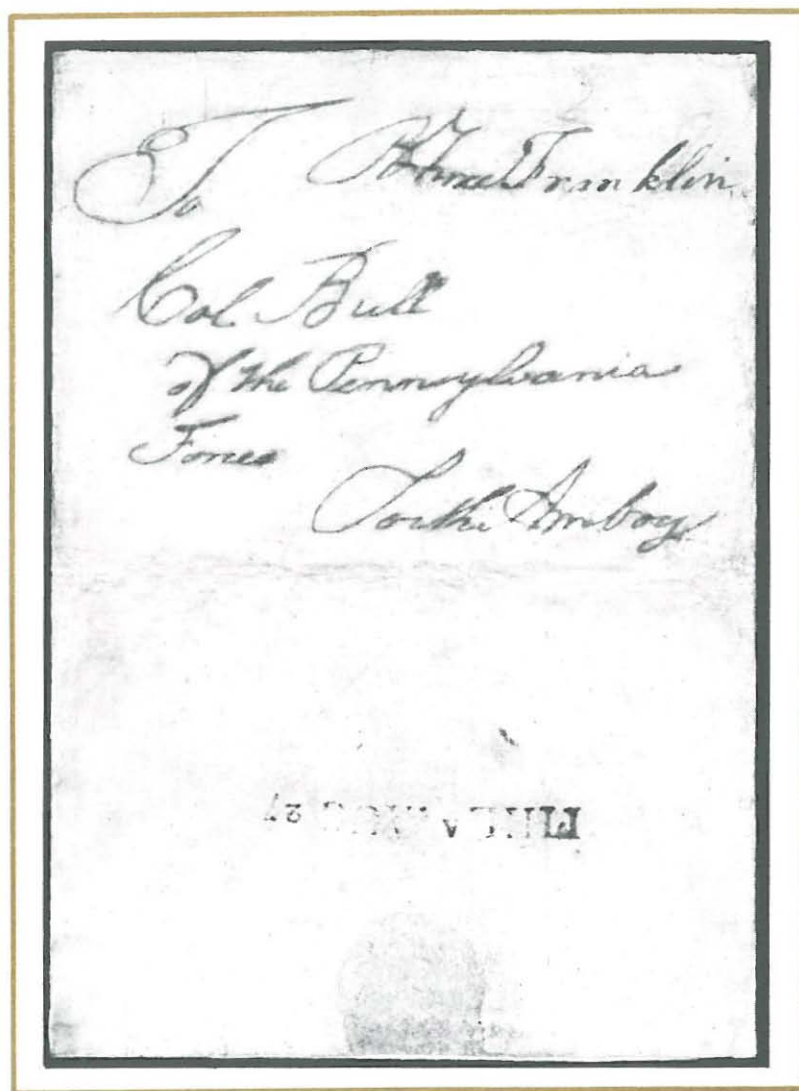 To B Free Franklin
Col Bull
of the Pennsylvania
Forces
Amboy
PHILA AUG 27